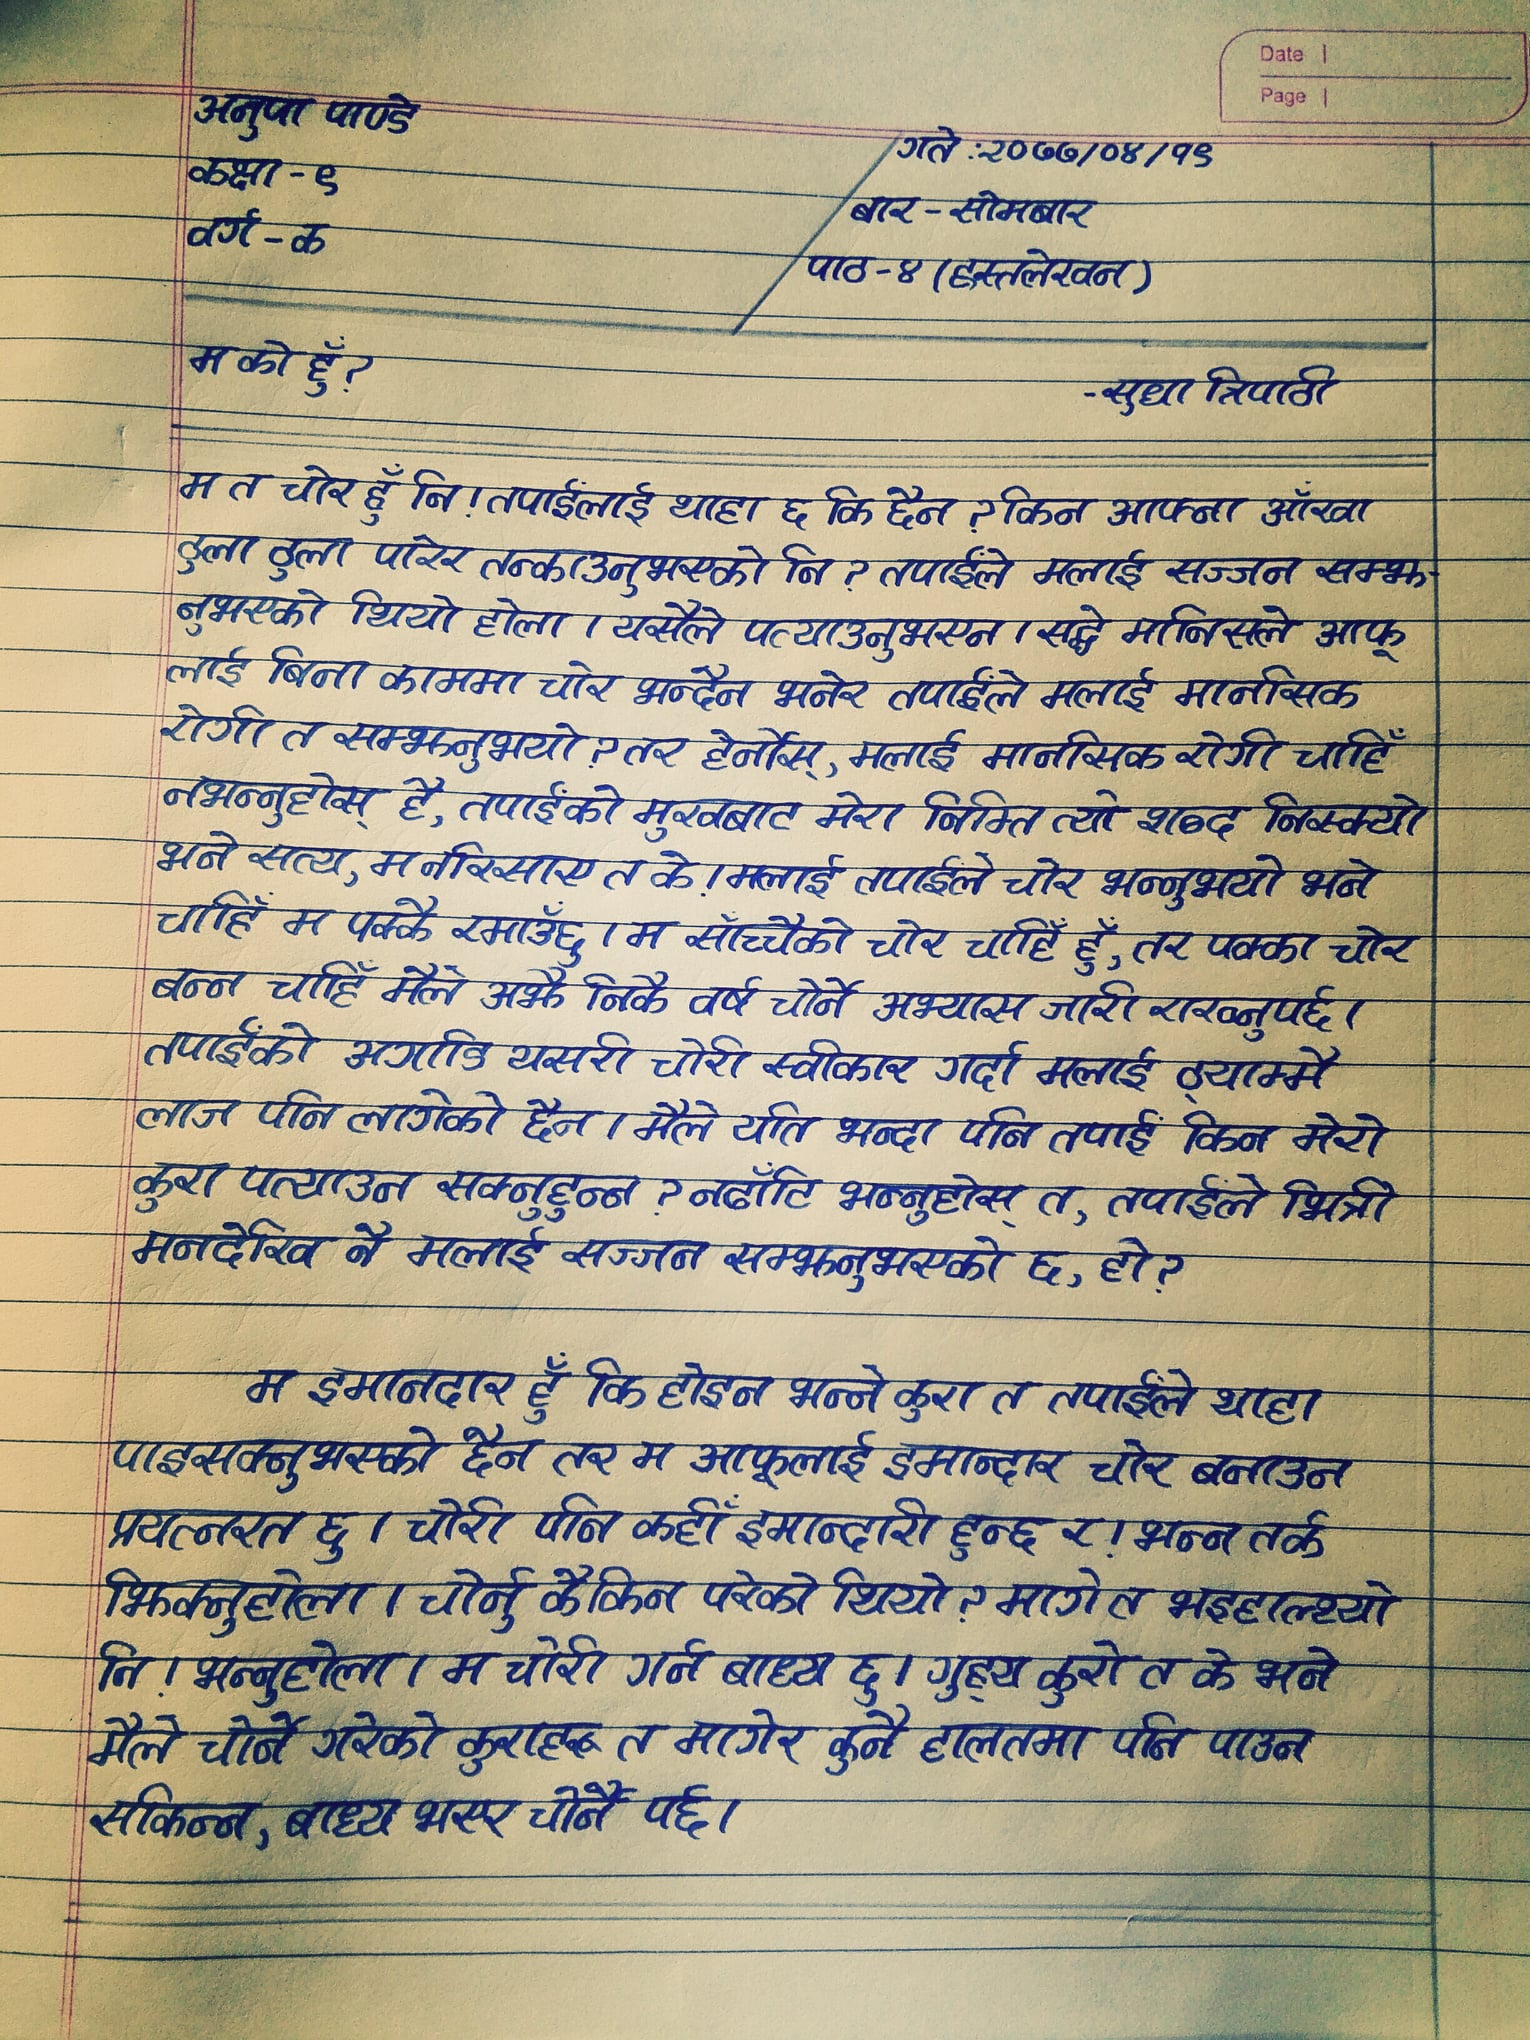 Date
Page
अनुपा पाण्डे
कक्षा - ९
वर्ग - क
गते : २०७७/०४/१९
बार - सोमबार
पाठ - ४ (हस्तलेखन)
म को हुँ ?
- सुधा त्रिपाठी
म त चोर हुँ नि ! तपाईंलाई थाहा छ कि छैन ? किन आफ्ना आँखा
ठुला ठुला पारेर तन्काउनुभएको नि ? तपाईंले मलाई सज्जन सम्झ-
नुभएको थियो होला । यसैले पत्याउनुभएन । सद्धे मानिसले आफू
लाई बिना काममा चोर भन्दैन भनेर तपाईंले मलाई मानसिक
रोगी त सम्झनुभयो ? तर हेर्नोस्, मलाई मानसिक रोगी चाहिँ
नभन्नुहोस् है, तपाईंको मुखबाट मेरा निम्ति त्यो शब्द निस्क्यो
भने सत्य, म नरिसाए त के ! मलाई तपाईंले चोर भन्नुभयो भने
चाहिँ म पक्कै रमाउँछु । म साँच्चैको चोर चाहिँ हुँ, तर पक्का चोर
बन्न चाहिँ मैले अझै निकै वर्ष चोर्ने अभ्यास जारी राख्नुपर्छ ।
तपाईंको अगाडि यसरी चोरी स्वीकार गर्दा मलाई ठ्याम्मै
लाज पनि लागेको छैन । मैले यति भन्दा पनि तपाईं किन मेरो
कुरा पत्याउन सक्नुहुन्न ? नढाँटि भन्नुहोस् त, तपाईंले भित्री
मनदेखि नै मलाई सज्जन सम्झनुभएको छ, हो ?
म इमानदार हुँ कि होइन भन्ने कुरा त तपाईंले थाहा
पाइसक्नुभएको छैन तर म आफूलाई इमान्दार चोर बनाउन
प्रयत्नरत छु । चोरी पनि कहीँ इमान्दारी हुन्छ र ! भन्न तर्क
झिक्नुहोला । चोर्नु कैकिन परेको थियो ? मागे त भइहाल्थ्यो
नि ! भन्नुहोला । म चोरी गर्न बाध्य छु । गुह्य कुरो त के भने
मैले चोर्ने गरेको कुराहरू त मागेर कुनै हालतमा पनि पाउन
सकिन्न, बाध्य भएर चोर्नै पर्छ ।